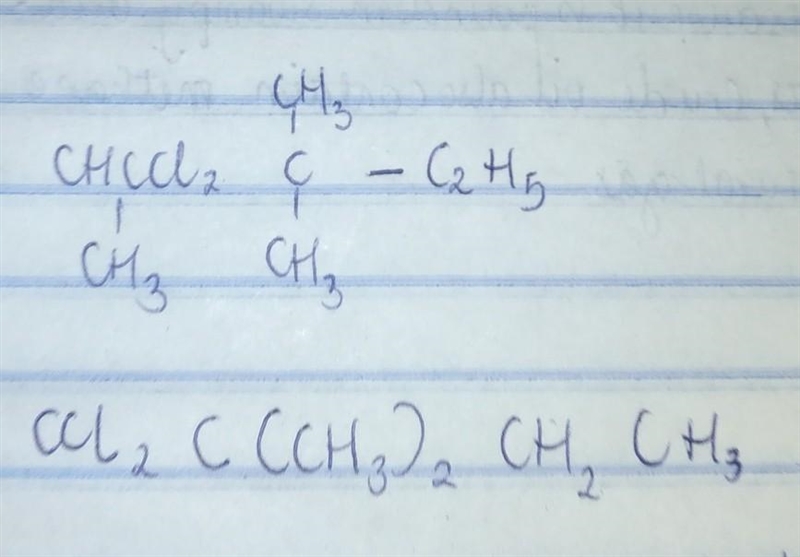 CH3
CHCCl2 C - C2H5
CH3 CH3
CCl2 C (CH3)2 CH2 CH3